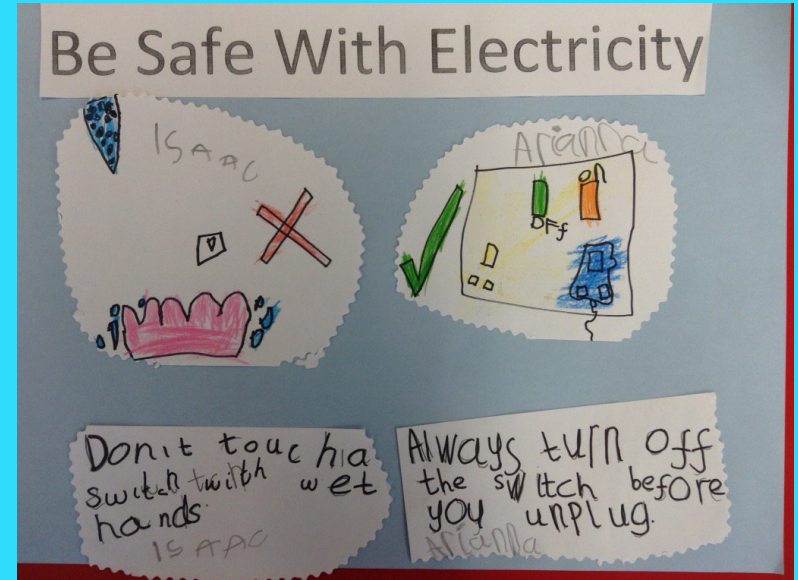 Be Safe With Electricity
ISAAC
Arianna
on
OFf
Don't touch a
switch with wet
hands
ISAAC
Always turn off
the switch before
you unplug.
Arianna